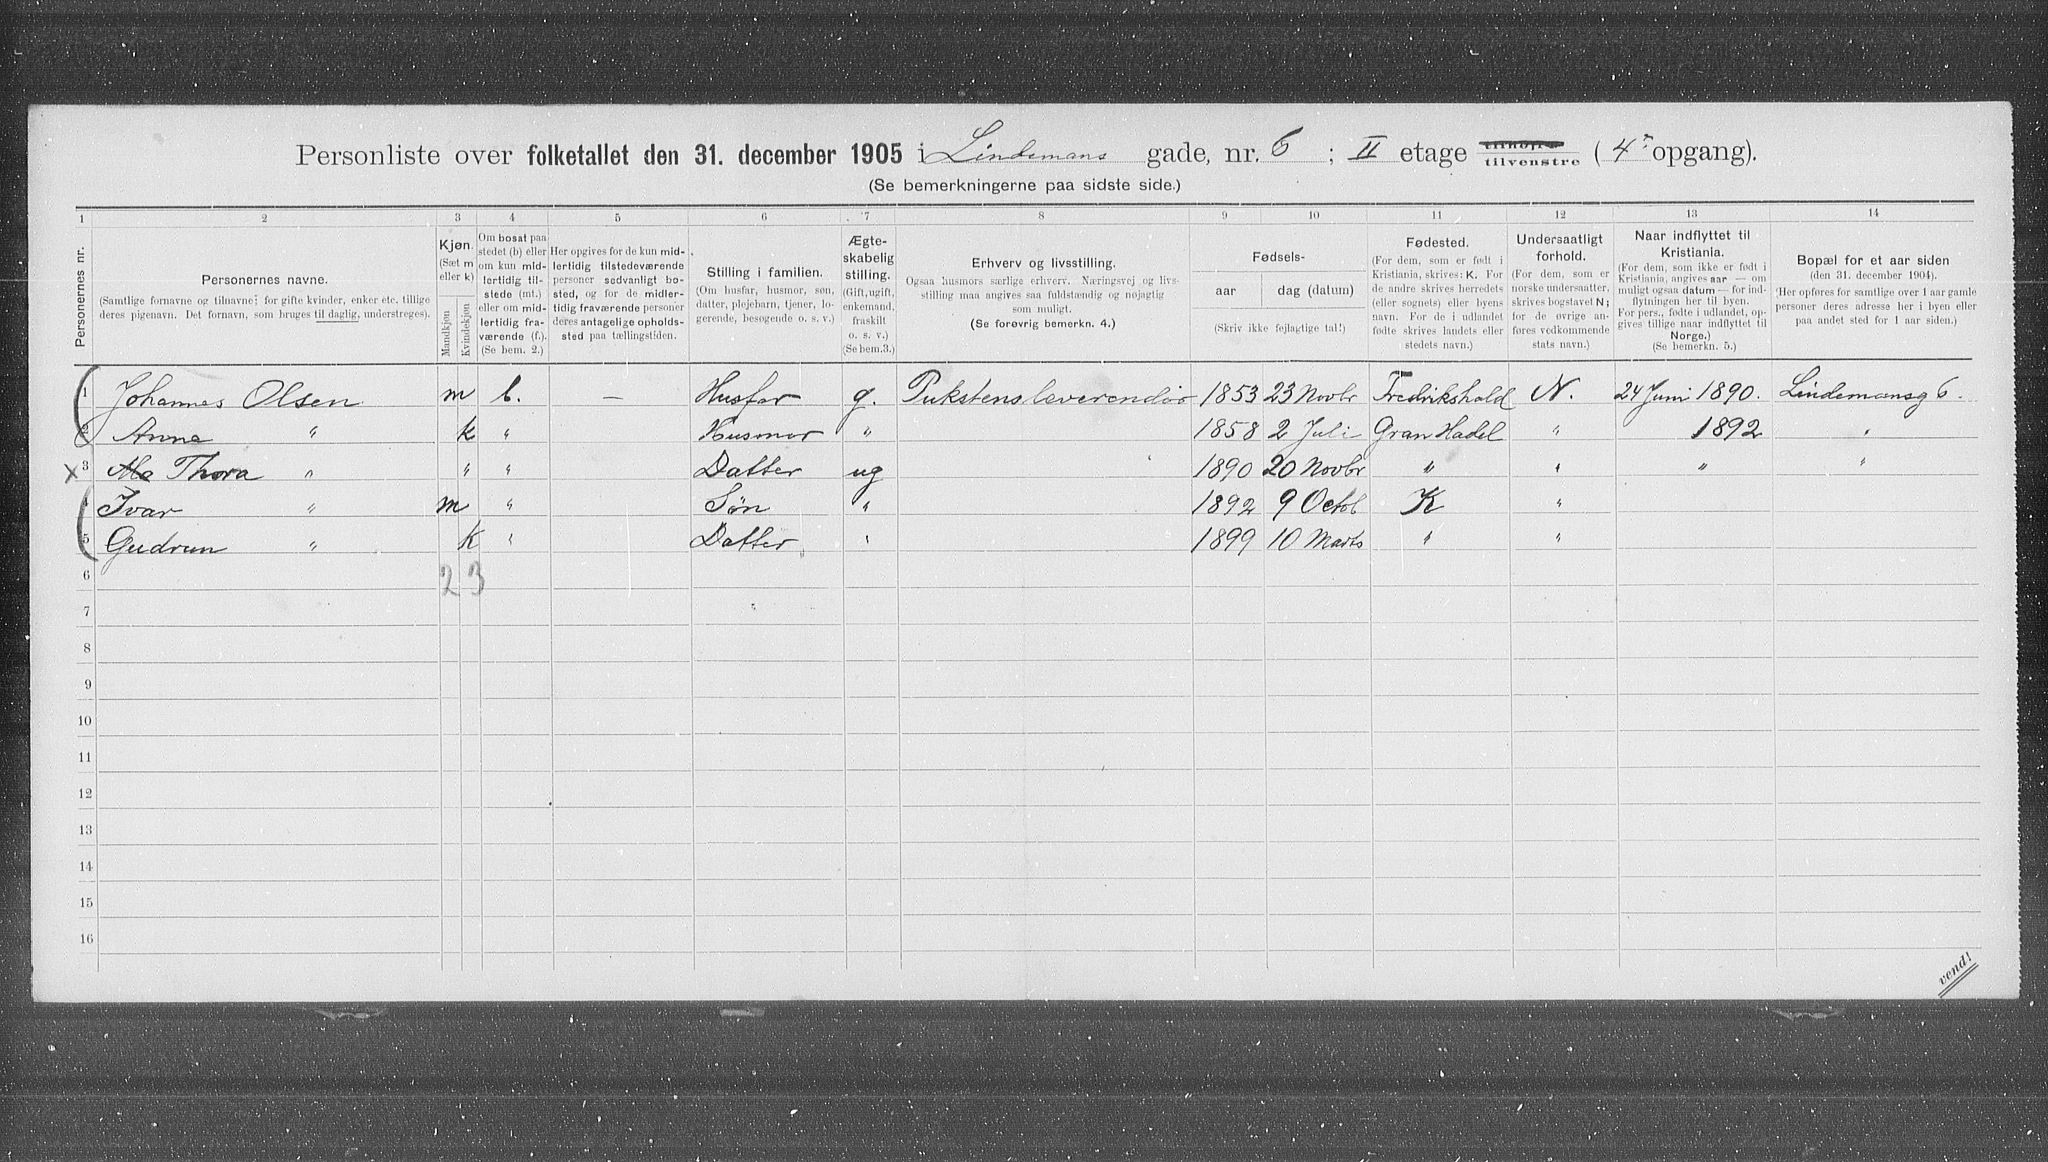 Personliste over folketallet den 31. december 1905 i Lindemans gade, nr. 6 ; II etage tilhøjre tilvenstre ( 4. opgang).
(Se bemerkningerne paa sidste side.)
1 2 3 4 5 6 7 8 9 10 11 12 13 14
Personernes nr.
Personernes navne.
(Samtlige fornavne og tilnavne; for gifte kvinder, enker etc. tillige
deres pigenavn. Det fornavn, som bruges til daglig, understreges).
Kjøn.
(Sæt m
eller k)
Mandkjøn
Kvindekjøn
Om bosat paa
stedet (b) eller
om kun mid-
lertidig til-
stede (mt.)
eller om mid-
lertidig fra-
værende (f.).
(Se bem. 2.)
Her opgives for de kun mid-
lertidig tilstedeværende
personer sedvanlig bo-
sted, og for de midler-
tidig fraværende personer
deres antagelige opholds-
sted paa tællingstiden.
Stilling i familien.
(Om husfar, husmor, søn,
datter, plejebarn, tjener, lo-
gerende, besøgende o. s. v.)
Ægte-
skabelig
stilling.
(Gift, ugift,
enkemand,
fraskilt
o. s. v.)
(Se bem. 3.)
Erhverv og livsstilling.
Ogsaa husmors særlige erhverv. Næringsvej og livs-
stilling maa angives saa fuldstændig og nøjagtig
som muligt.
(Se forøvrig bemerkn. 4.)
Fødsels-
aar
dag (datum)
(Skriv ikke fejlagtige tal!)
Fødested.
(For dem, som er født i
Kristiania, skrives: K. For
de andre skrives herredets
(eller sognets) eller byens
navn. For de i udlandet
fødte skrives landets eller
stedets navn.)
Undersaatligt
forhold.
(For dem, som er
norske undersaatter,
skrives bogstavet N;
for de øvrige an-
føres vedkommende
stats navn.)
Naar indflyttet til
Kristiania.
(For dem, som ikke er født i
Kristiania, angives aar — om
muligt ogsaa datum — for ind-
flytningen her til byen.
For pers., fødte i udlandet, op-
gives tillige naar indflyttet til
Norge.)
(Se bemerkn. 5.)
Bopæl for et aar siden
(den 31. december 1904).
(Her opføres for samtlige over 1 aar gamle
personer deres adresse her i byen eller
paa andet sted for 1 aar siden.)
1 Johannes Olsen m b. — Husfar g. Pukstensleverendør 1853 23 Novbr Fredrikshald N. 24 Juni 1890. Lindemansg 6.
2 Anna " k " Husmor " 1858 2 Juli Gran Hadel " 1892 "
x 3 Thora " " " Datter ug 1890 20 Novbr " " " "
4 Ivar " m " Søn " 1892 9 Octob K "
5 Gudrun " k " Datter " 1899 10 Marts " "
6 2 3
7
8
9
10
11
12
13
14
15
16
vend!